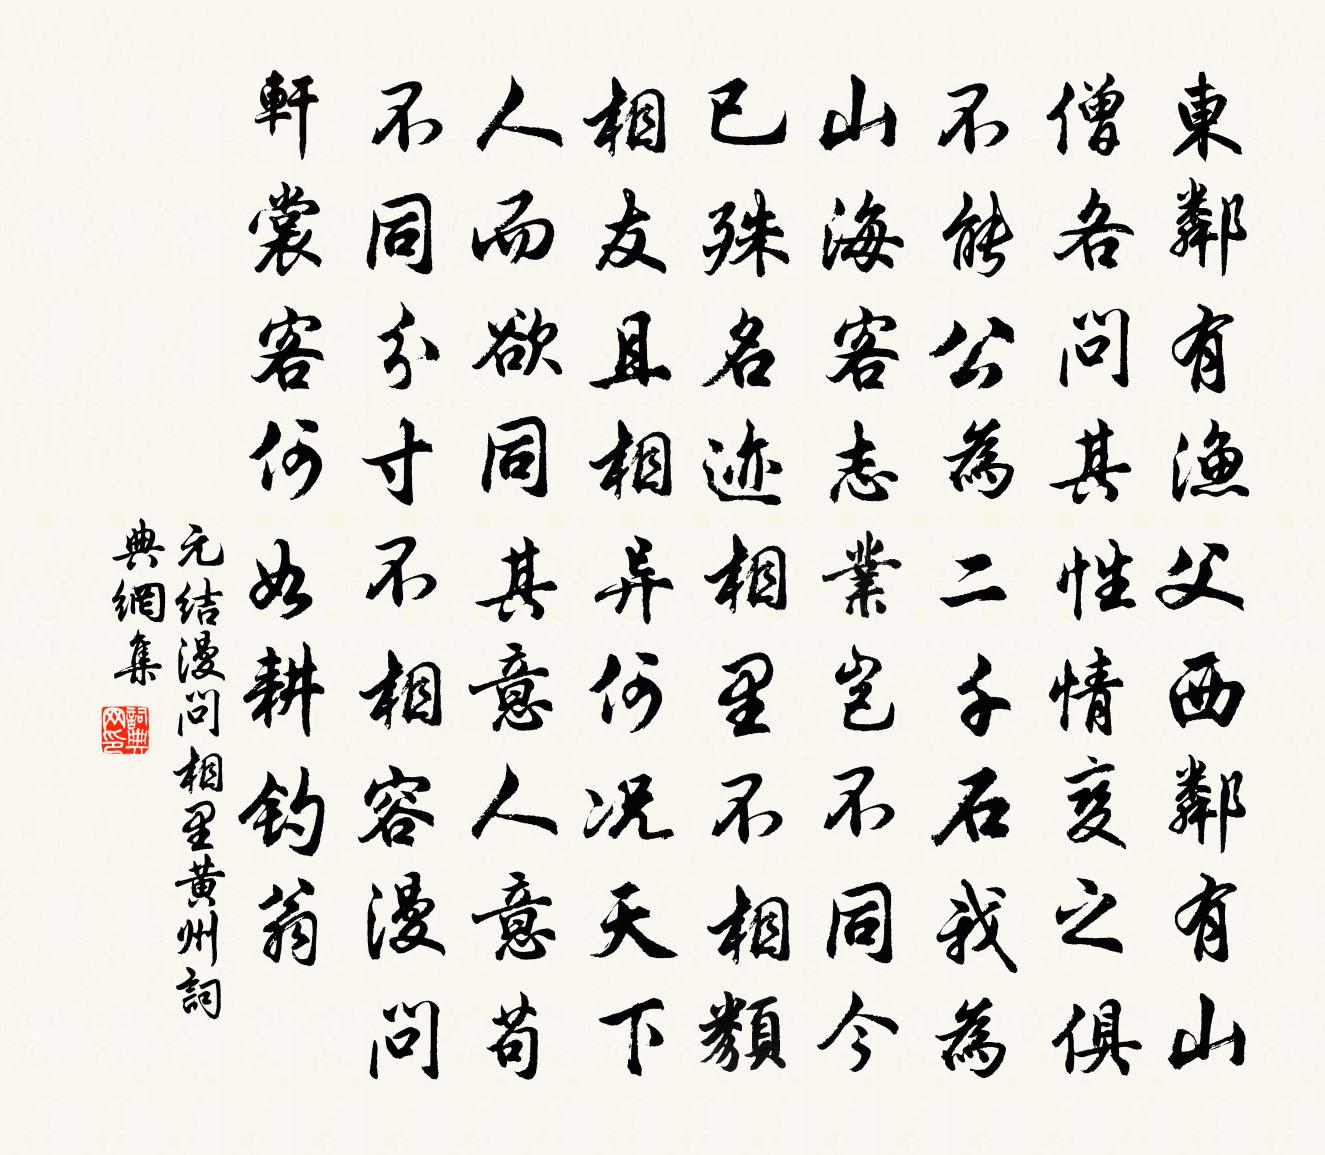 東鄰有漁父西鄰有山
僧各問其性情変之俱
不能公為二千石我為
山海客志業岂不同今
已殊名迹相里不相類
相友且相异何况天下
人而欲同其意人意苟
不同分寸不相容漫問
軒裳客何如耕钓翁
元结漫问相里黄州詞
典網集
詞典网印